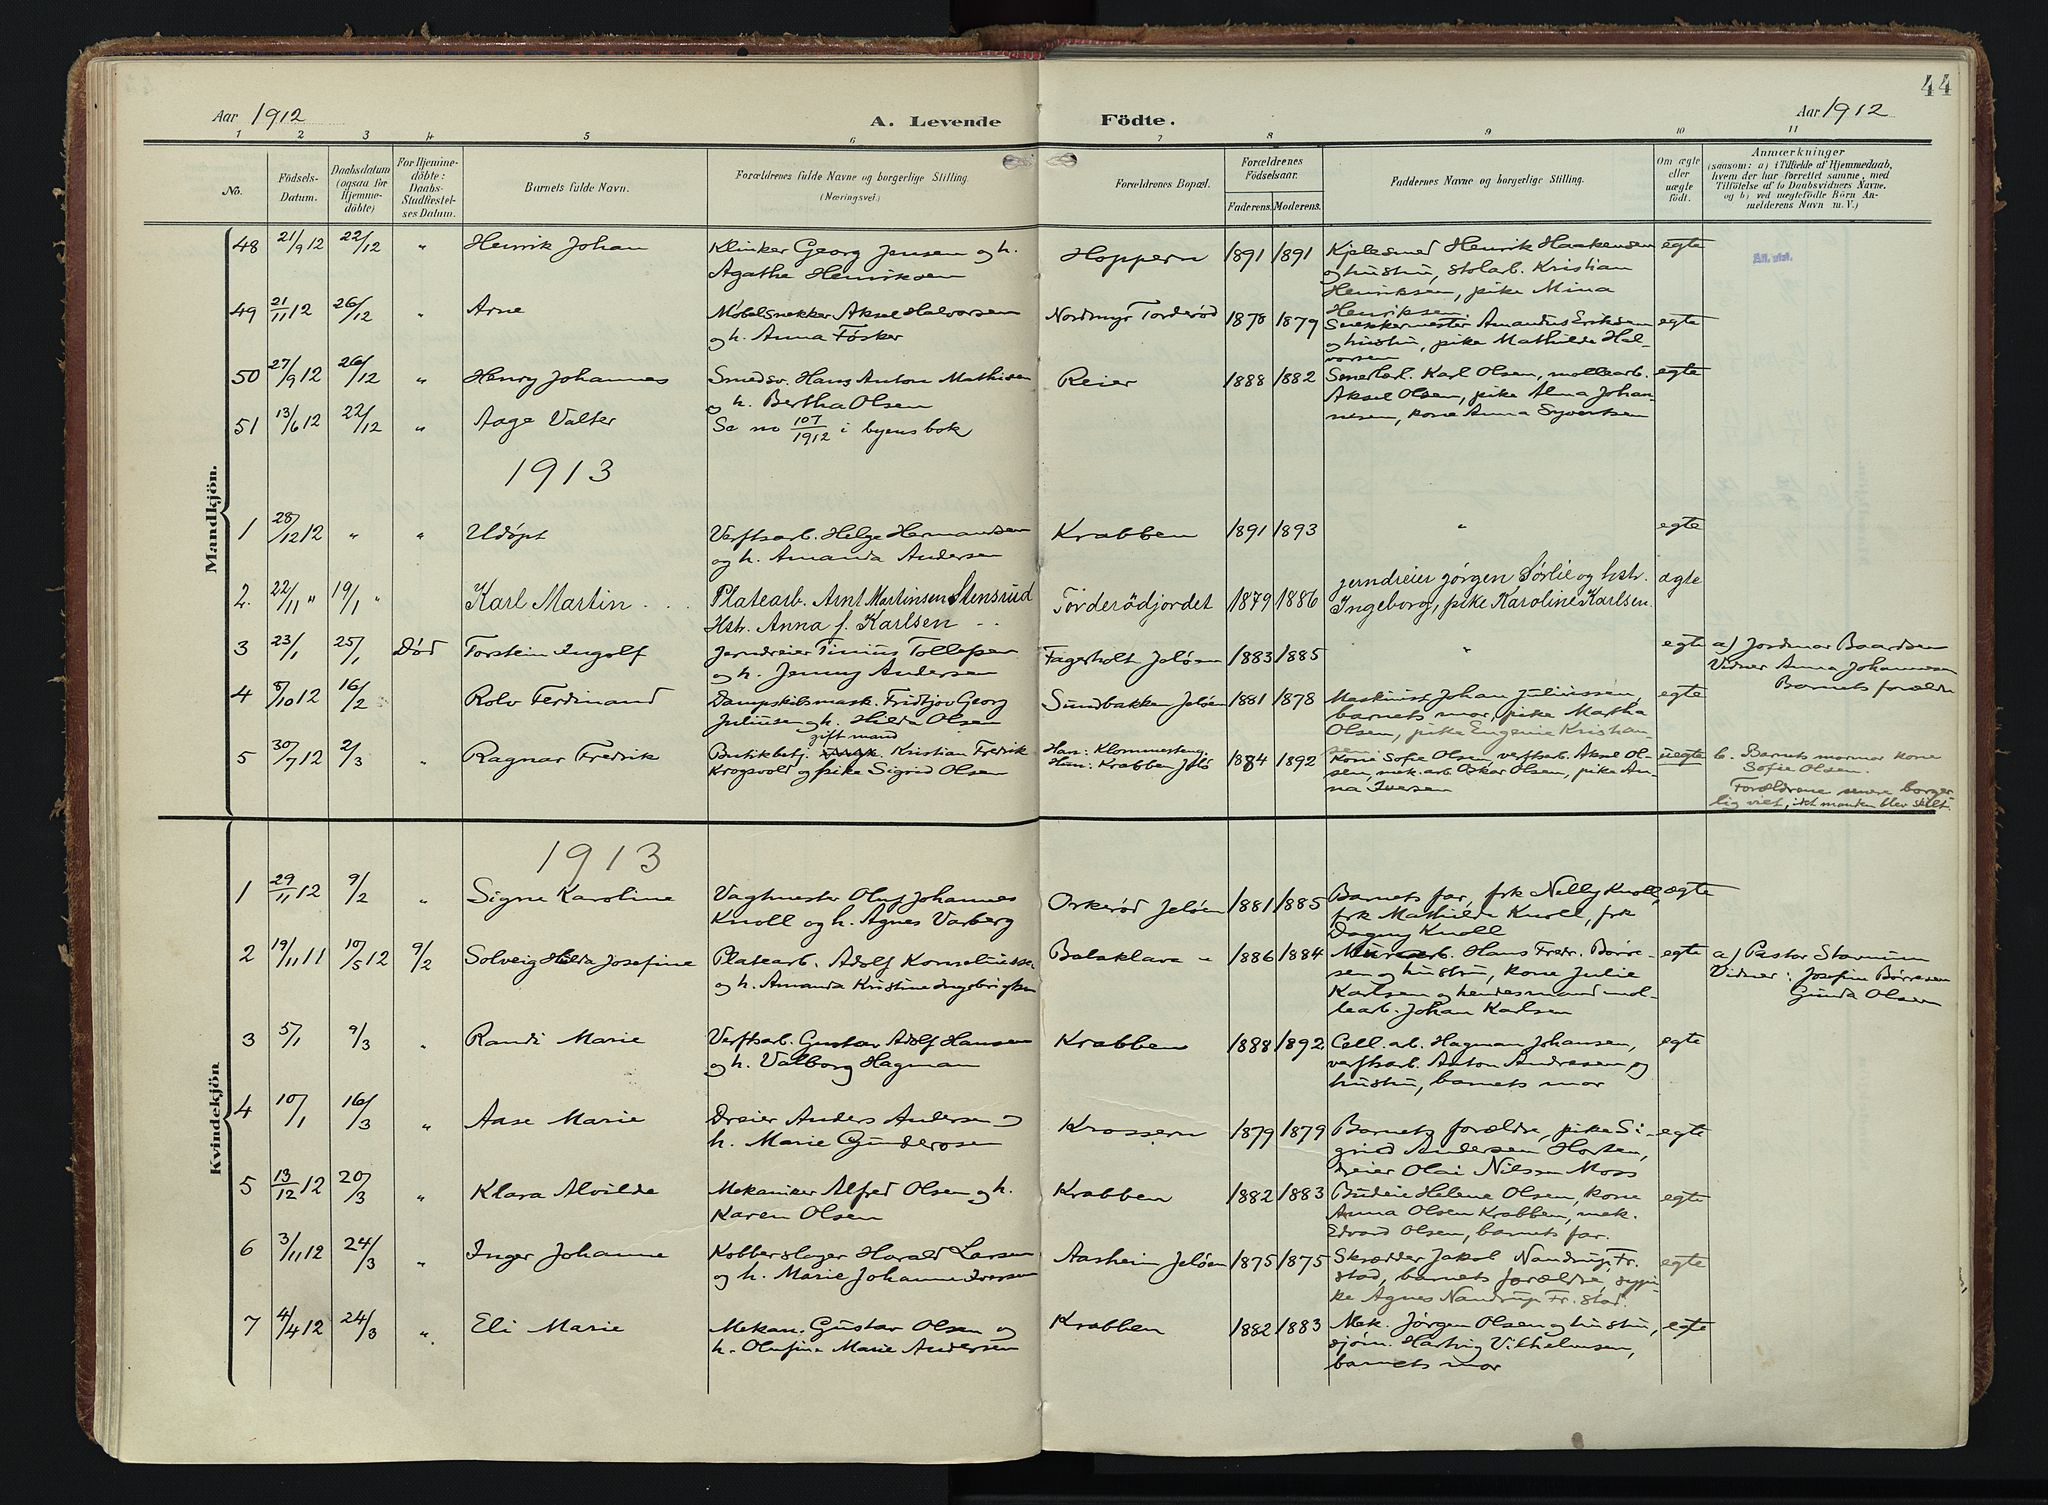 44
Aar 1912
A. Levende Födte.
Aar 1912
1 2 3 4 5 6 7 8 9 10 11
No.
Födsels-Datum.
Daabsdatum (ogsaa for Hjemme-döbte)
For Hjemme-döbte: Daabs-Stadfæstel-ses Datum.
Barnets fulde Navn.
Forældrenes fulde Navne og borgerlige Stilling. (Næringsvei.)
Forældrenes Bopæl.
Forældrenes Födselsaar.
Faderens. Moderens.
Faddernes Navne og borgerlige Stilling.
Om ægte eller uægte födt.
Anmærkninger
(saasom: a) i Tilfælde af Hjemmedaab, hvem der har forrettet samme, med Tilföielse af to Daabsvidners Navne, og b) ved uægtefödte Börn An-melderens Navn m. V.)
Mandkjön.
48 21/9 12 22/12 " Henrik Johan Klinker Georg Jensen og h. Agathe Henriksen Hoppern 1891 1891 Kjelesmed Henrik Haakensen og hustru, stolarb. Kristian Henriksen, pike Mina Henriksen egte
49 21/11 12 26/12 " Arne Møbelsnekker Aksel Halvorsen og h. Anna Fosker Nordmyr Torderød 1878 1879 Snekkermester Amandus Eriksen og hustru, pike Mathilde Hal-vorsen egte
50 27/9 12 26/12 " Henry Johannes Smedsv. Hans Anton Mathisen og h. Bertha Olsen Reier 1888 1882 Karl Olsen, møllearb. Aksel Olsen, pike Alma Johan-nesen, kone Anna Syvertsen egte
51 13/6 12 22/12 " Aage Valter Se no 107/1912 i byens bok
1913
1 28/12 12 " " Udöpt Verftsarb. Helge Hermandsen og h. Amanda Andersen Krabben 1891 1893 " egte
2. 22/11 " 19/1 " Karl Martin Platearb. Arnt Martinsen Stensrud Hstr. Anna f. Karlsen Torderödjordet 1879 1886 jerndreier Jörgen Sørlie og hstr. Ingeborg, pike Karoline Karlsen. ægte
3 23/1 25/1 Död Torstein Ingolf Jerndreier Tinius Tollefsen og h. Jenny Andersen Fagerholt Jeløen 1883 1885 " egte a) Jordmor Baardsen Vidner Anna Johannesen Barnets forældre
4 8/10 12 16/2 Rolv Ferdinand Dampskibsmask. Fridtjov Georg Juliussen og h. Hilda Olsen Sundbakken Jeløen 1881 1878 Maskinist Johan Juliussen, barnets mor, pike Martha Olsen, pike Eugenie Kristian-sen egte
5 30/7 12 2/3 " Ragnar Fredrik Butikbetj. gift mand Kristian Fredrik Krogsvold og pike Sigrid Olsen Han: Klommesteng. Hun: Krabben Jelø 1884 1892 Kone Sofie Olsen, verftsarb. Aksel Ol-sen, mek. arb Oskar Olsen, pike An-na Iversen uegte b. Barnets mormor kone Sofie Olsen. Forældrene senere borger-lig viet, idet manden blev skilt.
Kvindekjön
1913
1 29/11 12 9/2 " Signe Karoline Vagtmester Oluf Johannes Knoll og h. Agnes Varberg Orkerød Jeløen 1881 1885 Barnets far, frk Nelly Knoll, frk Mathilde Knoll, frk Dagny Knoll ægte
2 19/11 11 10/5 12 9/2 Solveig Hilda Josefine Platearb. Adolf Korneliussen og h. Amanda Kristine Ingebrigtsen Balaklava " 1886 1884 Murarb. Hans Fredr. Børre-sen og hustru, kone Julie Karlsen og hendes mand møl-learb. Johan Karlsen egte a) Pastor Stavnum Vidner: Josefine Børresen Gunda Olsen
3 5/1 9/3 " Randi Marie Verftsarb. Gustav Adolf Hansen og h. Valborg Hagman Krabben 1888 1892 Cell. arb. Hagman Johansen, verftsarb. Anton Andresen og hustru, barnets mor egte
4 10/1 16/3 " Aase Marie Dreier Anders Andersen og h. Marie Gunderosen Krossern 1879 1879 Barnets forældre, pike Si-grid Andersen Horten, dreier Olai Nilsen Moss egte
5 13/12 12 20/3 " Klara Alvilde Mekaniker Alfred Olsen og h. Karen Olsen Krabben 1882 1883 Budeie Helene Olsen, kone Anna Olsen Krabben, mek. Edvard Olsen, barnets far. egte
6 3/11 12 24/3 " Inger Johanne Kobberslager Harald Larsen og h. Marie Johanne Iversen Aasheim Jeløen 1875 1875 Skrædder Jakob Nandrup Fr. stad, barnets forældre, sypi-ke Agnes Nandrup Fr. stad. egte
7 4/4 12 24/3 " Eli Marie Mekan. Gustav Olsen og h. Olufine Marie Andersen Krabben 1882 1883 Mek. Jørgen Olsen og hustru, sjøm. Hartvig Vilhelmsen, barnets mor egte